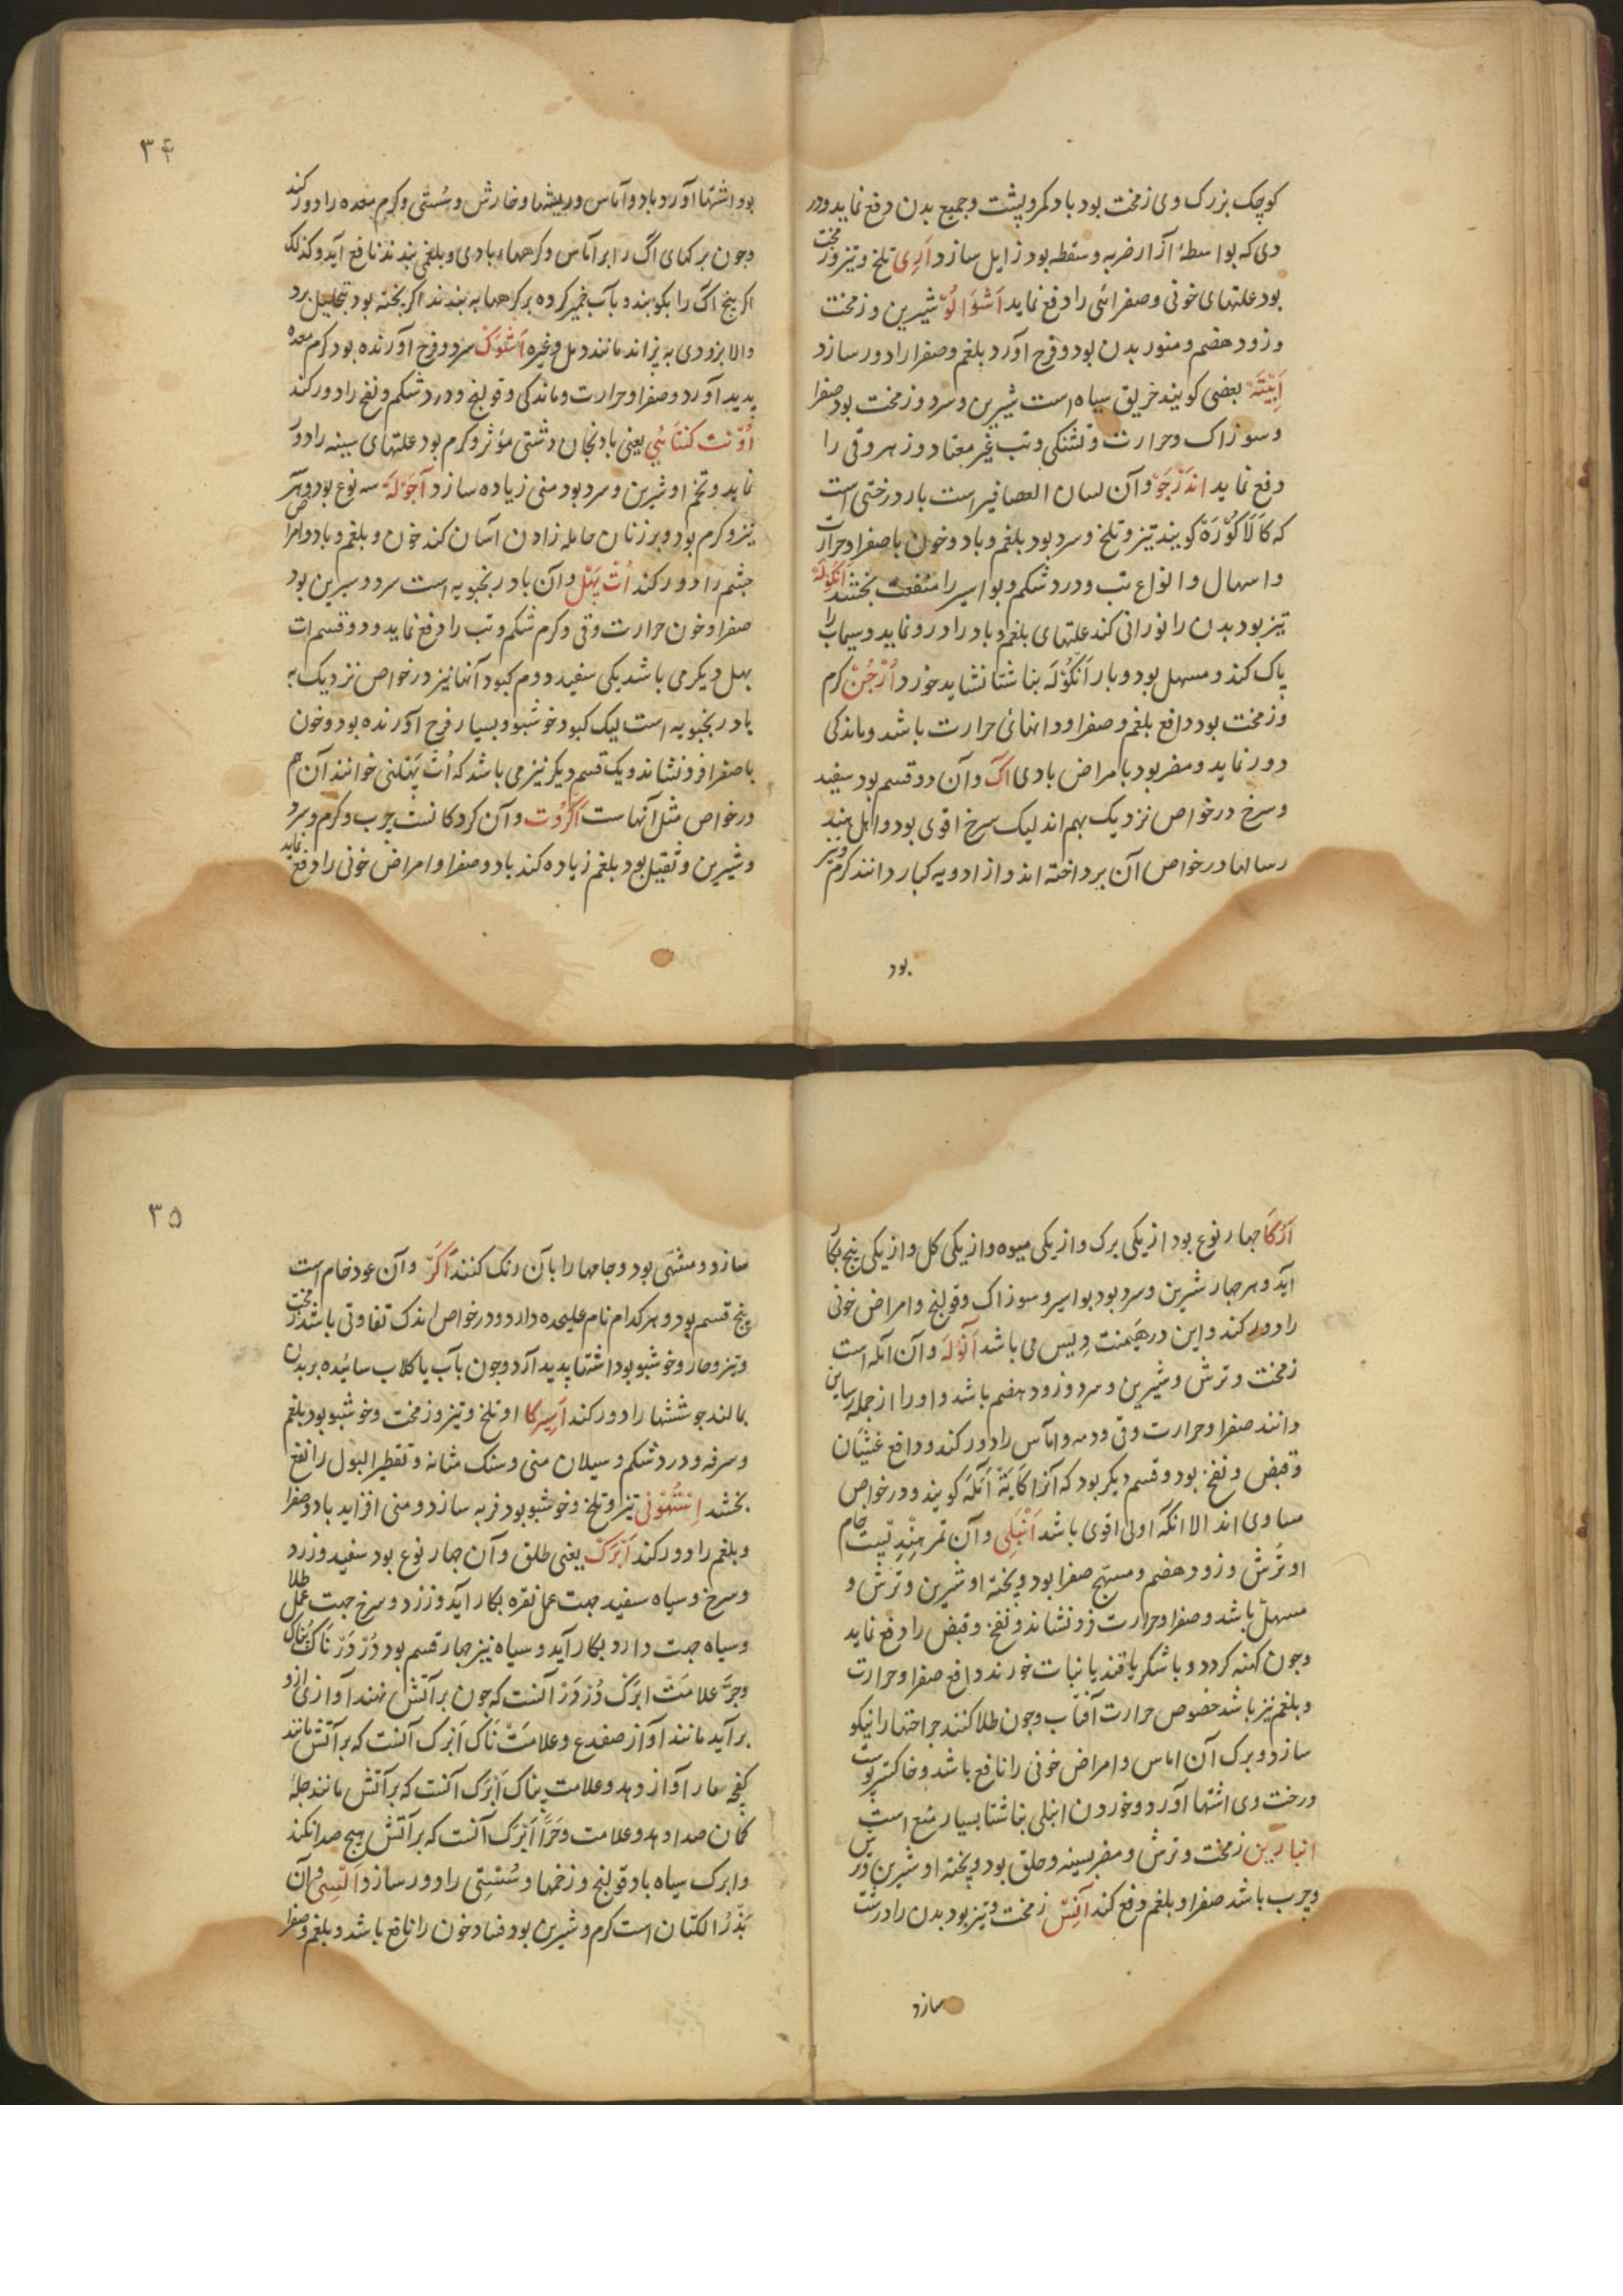 کوچک بزرک وی زمخت بود باد کمر و پشت و جمیع بدن دفع نماید و در
دی که بواسطهٔ آزار ضربه و سقطه بود زایل سازد اَرِی تلخ و تیز و زمخت
بود علتهای خونی و صفرائی را دفع نماید اَشْوَالُوْ شیرین و زمخت
و زود هضم و منور بدن بود و فرح آورد بلغم و صفرا را دور سازد
اَبِیْتَهْ بعضی کویند خریق سیاه است شیرین و سرد و زمخت بود صفرا
و سوزاک و حرارت و تشنکی و تب غیر معتاد و زهر و قی را
دفع نماید اندَرْجَوْ و آن لسان العصافیر است بار درختی است
که کَالَاکُوْرَهْ کویند تیز و تلخ و سرد بود بلغم و باد و خون با صفرا و حرارت
و اسهال و انواع تب و درد شکم و بواسیر را منفعت بخشد اَنْکُوْلَهْ
تیز بود بدن را نورانی کند علتهای بلغم و باد را درو نماید و سیماب را
پاک کند و مسهل بود و بار اَنکُوْلَهْ بناشتا نشاید خورد اَرْجُنْ کرم
و زمخت بود دافع بلغم و صفرا و دانهائی حرارت باشد و ماندکی
دور نماید و مضر بود بامراض بادی اَکْ و آن دو قسم بود سفید
و سرخ در خواص نزدیک بهم اند لیک سرخ اقوی بود و اهل هند
رسالها در خواص آن پرداخته اند و از ادویه کبار دانند کرم و تیز
بود
۳۴
بود اشتها آورد باد و آماس و ریشها و خارش و سُستی و کرم معده را دور کند
و چون برکهای اگ را بر آماس و کرههاء بادی و بلغمی بندند نافع آید و کذلک
اکر بیخ اک را بکوبند و بآب خمیر کرده بر کرهها به بندند اکر پخته بود بتحلیل برد
والا بزودی به پزاند مانند دمل و غیره اَشُوْکْ سرد و فرح آورنده بود کرم معده
پدید آورد و صفرا و حرارت و ماندکی و قولنج و درد شکم و نفخ را دور کند
اُوْنت کنتَائِی یعنی بادنجان دشتی مؤثر و کرم بود علتهای سینه را دور
نماید و تخم او شیرین و سرد بود منی زیاده سازد آجَوْلَهْ سه نوع بود و هر
تیز و کرم بود و بر زنان حامله زادن آسان کند خون و بلغم و باد و امراض
چشم را دور کند اُتْ پَهَلْ و آن بادرنجبویه است سرد و شیرین بود
صفرا و خون حرارت و قی و کرم شکم و تب را دفع نماید و دو قسم ات
پهل دیکر می باشد یکی سفید دوم کبود آنها نیز در خواص نزدیک به
بادرنجبویه است لیک کبود خوشبو و بسیار فرح آورنده بود و خون
با صفرا فرو نشاند و یک قسم دیکر نیز می باشد که اُتْ پَهَلنی خوانند آن هم
در خواص مثل آنهاست اَکَرُوْت و آن کردکانست چرب و کرم و سرد
و شیرین و ثقیل بود بلغم زیاده کند باد و صفرا و امراض خونی را دفع نماید
اَزْکَا چهار نوع بود از یکی برک و از یکی میوه و از یکی کل و از یکی بیخ بکار
آید و هر چهار شیرین و سرد بود بواسیر و سوزاک و قولنج و امراض خونی
را دور کند و این در هَیمنت دِیس می باشد آنْوَلَهْ و آن آمله است
زمخت و ترش و شیرین و سرد و زود هضم باشد و او را از جمله رساین
دانند صفرا و حرارت و قی و دمه و آماس را دور کند و دافع غثیان
و قبض و نفخ بود و قسم دیکر بود که آنرا کَایَتَهْ آنَلَهْ کویند و در خواص
مساوی اند الا انکه اولی اقوی باشد اَنْبَلِی و آن تمر هِنْدِیست خام
او تُرش و زود هضم و مهیج صفرا بود و پخته او شیرین و ترش و
مسهل باشد و صفرا و حرارت فرو نشاند و نفخ و قبض را دفع نماید
و چون کهنه کردد و با شکر یا قند یا نبات خورند دافع صفرا و حرارت
و بلغم نیز باشد خصوص حرارت آفتاب و چون طلا کنند جراحتها را نیکو
سازد و برک آن اماس و امراض خونی را نافع باشد و خاکستر پوست
درخت وی اشتها آورد و خوردن انبلی بناشتا بسیار منع است
انبارین زمخت و ترش و مضر بسینه و حلق بود و پخته او شیرین و ترش
و چرب باشد صفرا و بلغم دفع کند آنِسْ زمخت و تیز بود بدن را درست
سازد
۳۵
سازد و مشهّی بود و جامها را بآن رنک کنند اَکَرْ و آن عود خام است
پنج قسم بود و هر کدام نام علیحده دارد و در خواص اندک تفاوتی باشد زمخت
و تیز و حار و خوشبو بود اشتها پدید آرد و چون بآب یا کلاب سائیده بر بدن
بمالند جوششها را دور کند اَسِیرکا او تلخ و تیز و زمخت و خوشبو بود بلغم
و سرفه و درد شکم و سیلان منی و سنک مثانه و تقطیر البول را نفع
بخشد اِسْتُهْوْنی تیز و تلخ و خوشبو بود فربه سازد و منی افزاید باد و صفرا
و بلغم را دور کند اَبْرَکْ یعنی طلق و آن چهار نوع بود سفید و زرد
و سرخ و سیاه سفید جهت عمل نقره بکار آید و زرد و سرخ جهت عمل طلا
و سیاه جهت دارو بکار آید و سیاه نیز چهار قسم بود دُرْدَرْ نَاک پنَاک
وجرَّ علامَتْ ابرَک دُرْدَرْ آنست که چون بر آتش نهند آوازی ازو
برآید مانند آواز ضفدع و علامَتْ نَاک اَبْرک آنست که بر آتش مانند
کفچه مار آواز دهد و علامت پناک اَبْرَک آنست که بر آتش مانند چلهٔ
کمان صدا دهد و علامت وَجَرَّ اَبْرَک آنست که بر آتش هیچ صدا نکند
و ابرک سیاه باد قولنج و زخمها و سُستِی را دور سازد اَلْسِیْ و آن
بَذْرُ الکتان است کرم و شیرین بود فساد خون را نافع باشد و بلغم و صفرا